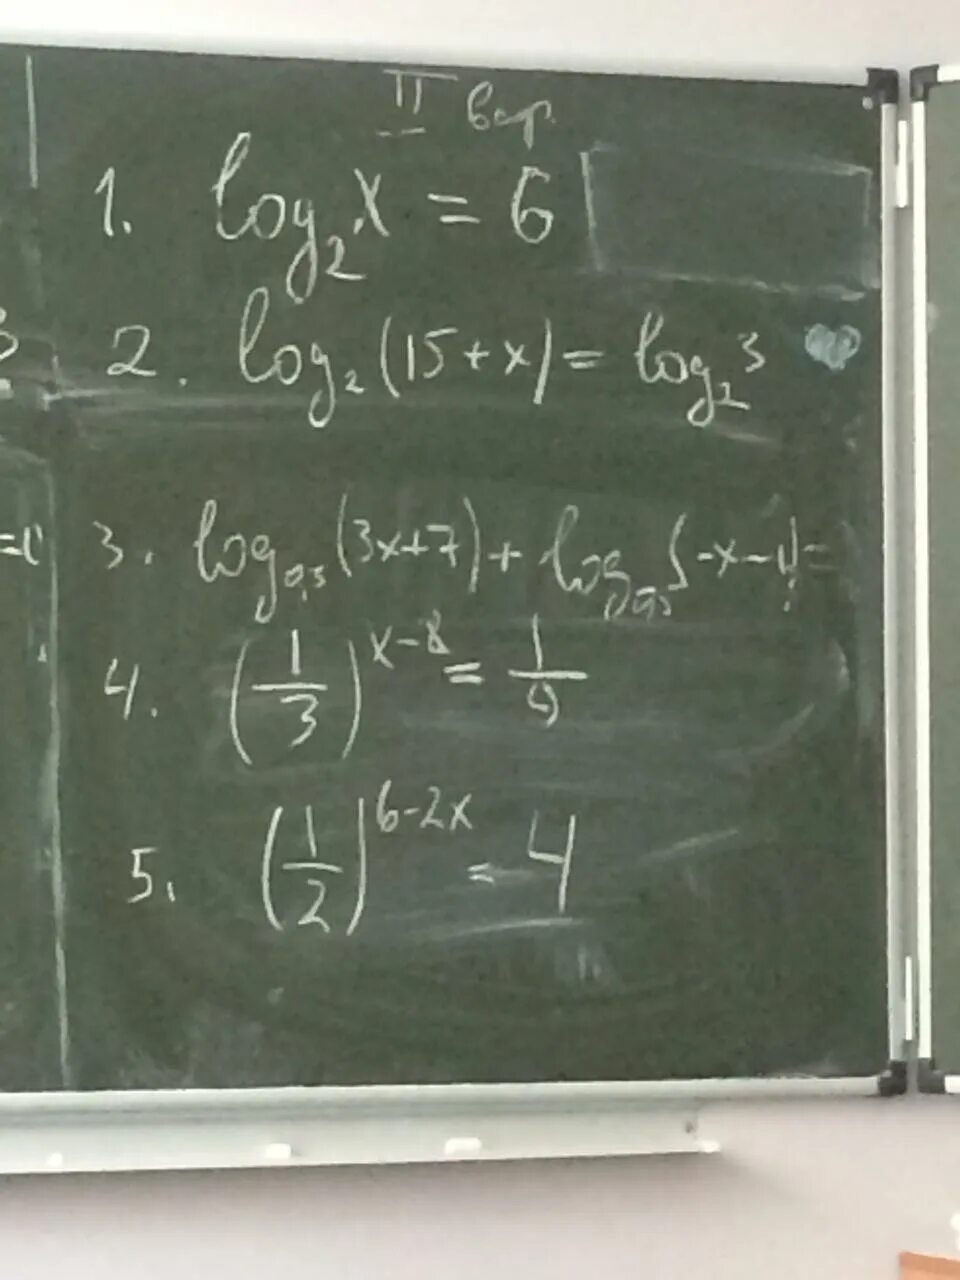 II вар.
1. log₂ x = 6
2. log₂ (15 + x) = log₂ 3
3. log (3x+7) + log
4. (1/3)^(x-8) = 1/9
5. (1/2)^(6-2x) = 4